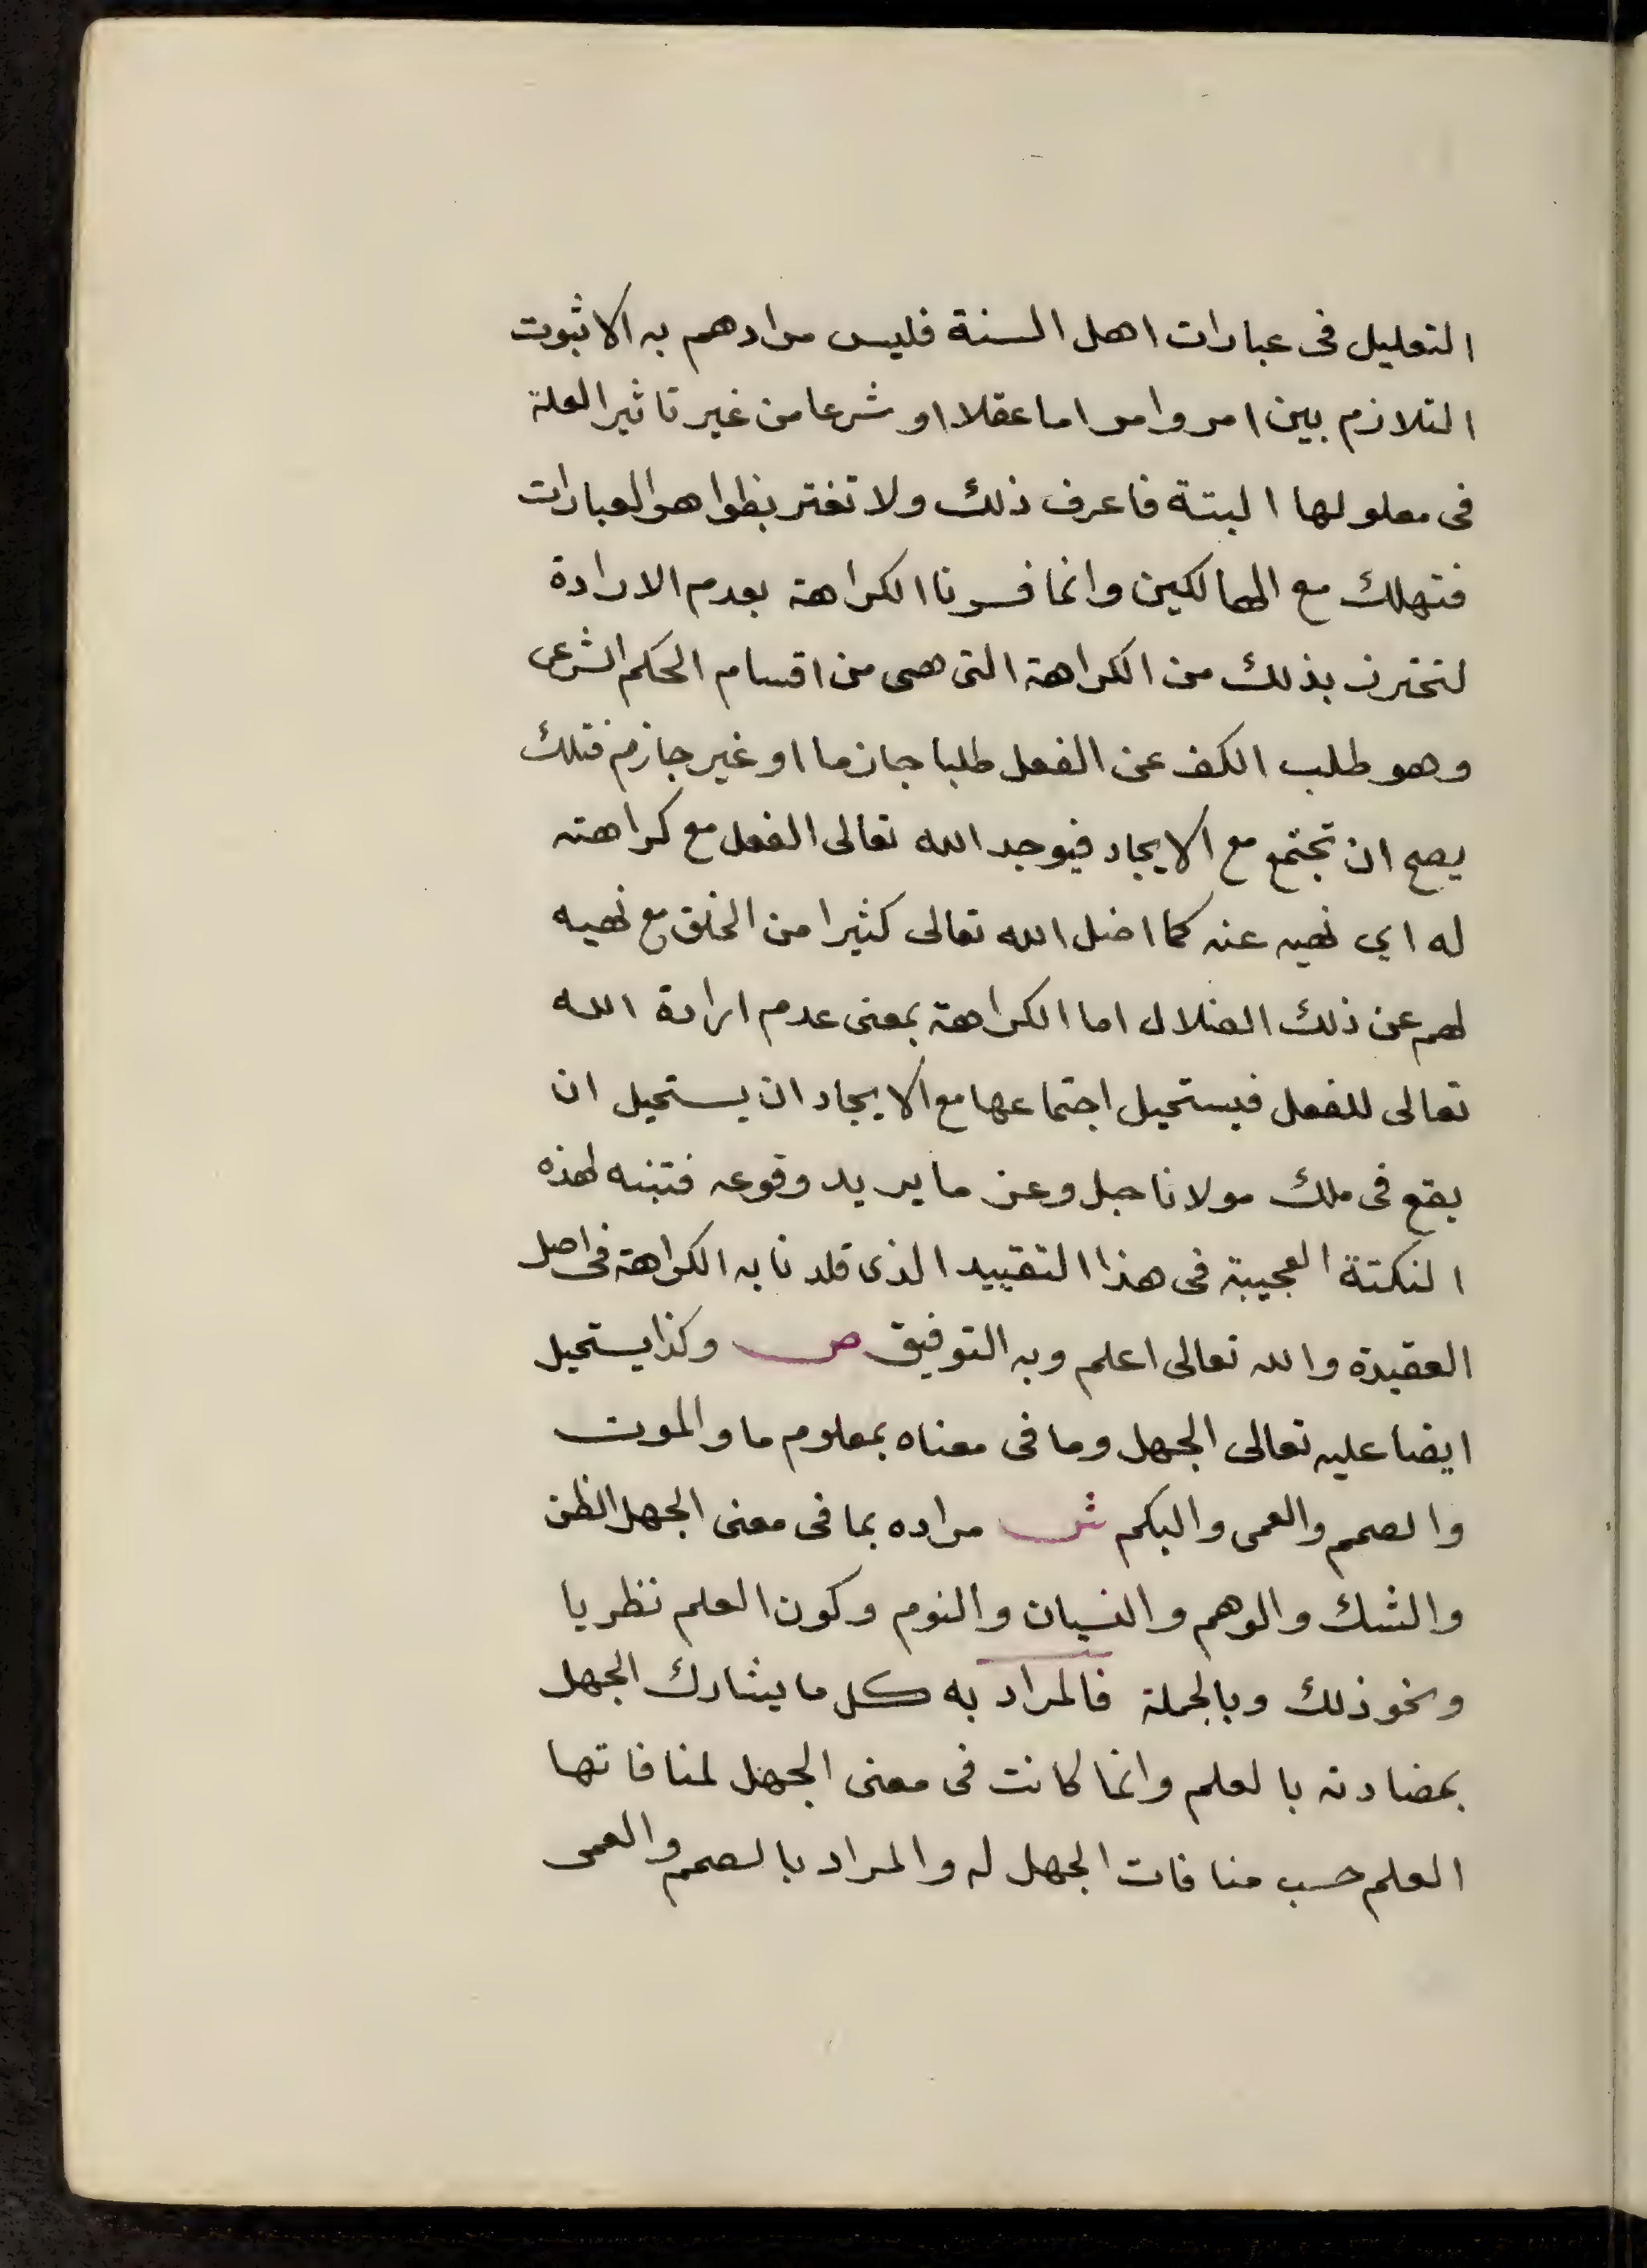 التعليل فى عبارات اهل السنة فليس مرادهم به الا ثبوت
التلازم بين امر وامر اما عقلا او شرعا من غير تاثير العلة
فى معلولها البتة فاعرف ذلك ولا تغتر بظواهر العبارات
فتهلك مع الهالكين وانما فسرنا الكراهة بعدم الارادة
لنحترز بذلك من الكراهة التى هى من اقسام الحكم الشرعى
وهو طلب الكف عن الفعل طلبا جازما او غير جازم فتلك
يصح ان تجتمع مع الايجاد فيوجد الله تعالى الفعل مع كراهته
له اي نهيه عنه كما اضل الله تعالى كثيرا من الخلق مع نهيه
لهم عن ذلك الضلال اما الكراهة بمعنى عدم ارادة الله
تعالى للفعل فيستحيل اجتماعها مع الايجاد ان يستحيل ان
يقع فى ملك مولانا جل وعز ما يريد وقوعه فتنبه لهذه
النكتة العجيبة فى هذا التقييد الذى قلدنا به الكراهة فى اصل
العقيدة والله تعالى اعلم وبه التوفيق ص وكذا يستحيل
ايضا عليه تعالى الجهل وما فى معناه بمعلوم ما والموت
والصمم والعمى والبكم ش مراده بما فى معنى الجهل الظن
والشك والوهم والنسيان والنوم وكون العلم نظريا
ونحو ذلك وبالجملة فالمراد به كل ما يشارك الجهل
بمضادته بالعلم وانما كانت فى معنى الجهل لمنافاتها
العلم حسب منافات الجهل له والمراد بالصمم والعمى